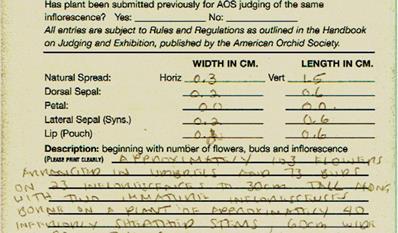 Has plant been submitted previously for AOS judging of the same
inflorescence? Yes: No:
All entries are subject to Rules and Regulations as outlined in the Handbook
on Judging and Exhibition, published by the American Orchid Society.
WIDTH IN CM. LENGTH IN CM.
Natural Spread: Horiz 0.3 Vert 1.5
Dorsal Sepal: 0.2 0.6
Petal: 0.0 0.0
Lateral Sepal (Syns.) 0.2 0.6
Lip (Pouch) 0.6
Description: beginning with number of flowers, buds and inflorescence
(PLEASE PRINT CLEARLY) APPROXIMATELY 153 FLOWERS
ARRANGED IN UMBRELS AND 73 BUDS
ON 23 INFLORESCENCES TO 30CM TALL ALONG
WITH TWO IMMATURE INFLORESCENCES
BORNE ON A PLANT OF APPROXIMATELY 40
SHEATHED STEMS, 60CM WIDE